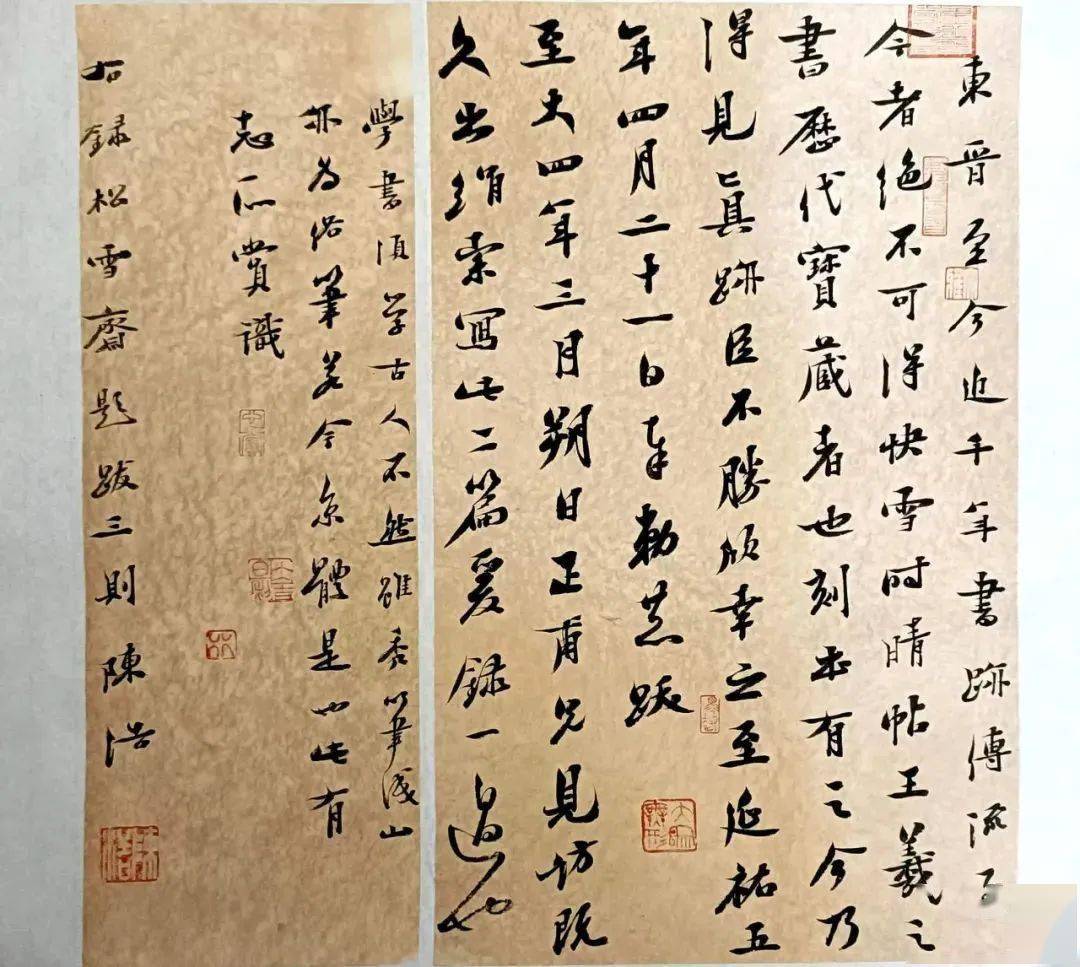 東晉至今近千年書跡傳流至
今者絶不可得快雪时晴帖王羲之
書歷代寶藏者也刻本有之今乃
得見真跡臣不勝欣幸之至延祐五
年四月二十一日奉勅恭跋
至大四年三月朔日正甫兄見訪既
久出絹索寫此二篇爰録一過也
學書須学古人不然雖秃筆成山
亦為俗筆若今京體是也此有
志所賞識
右録松雪齋題跋三則陳浩